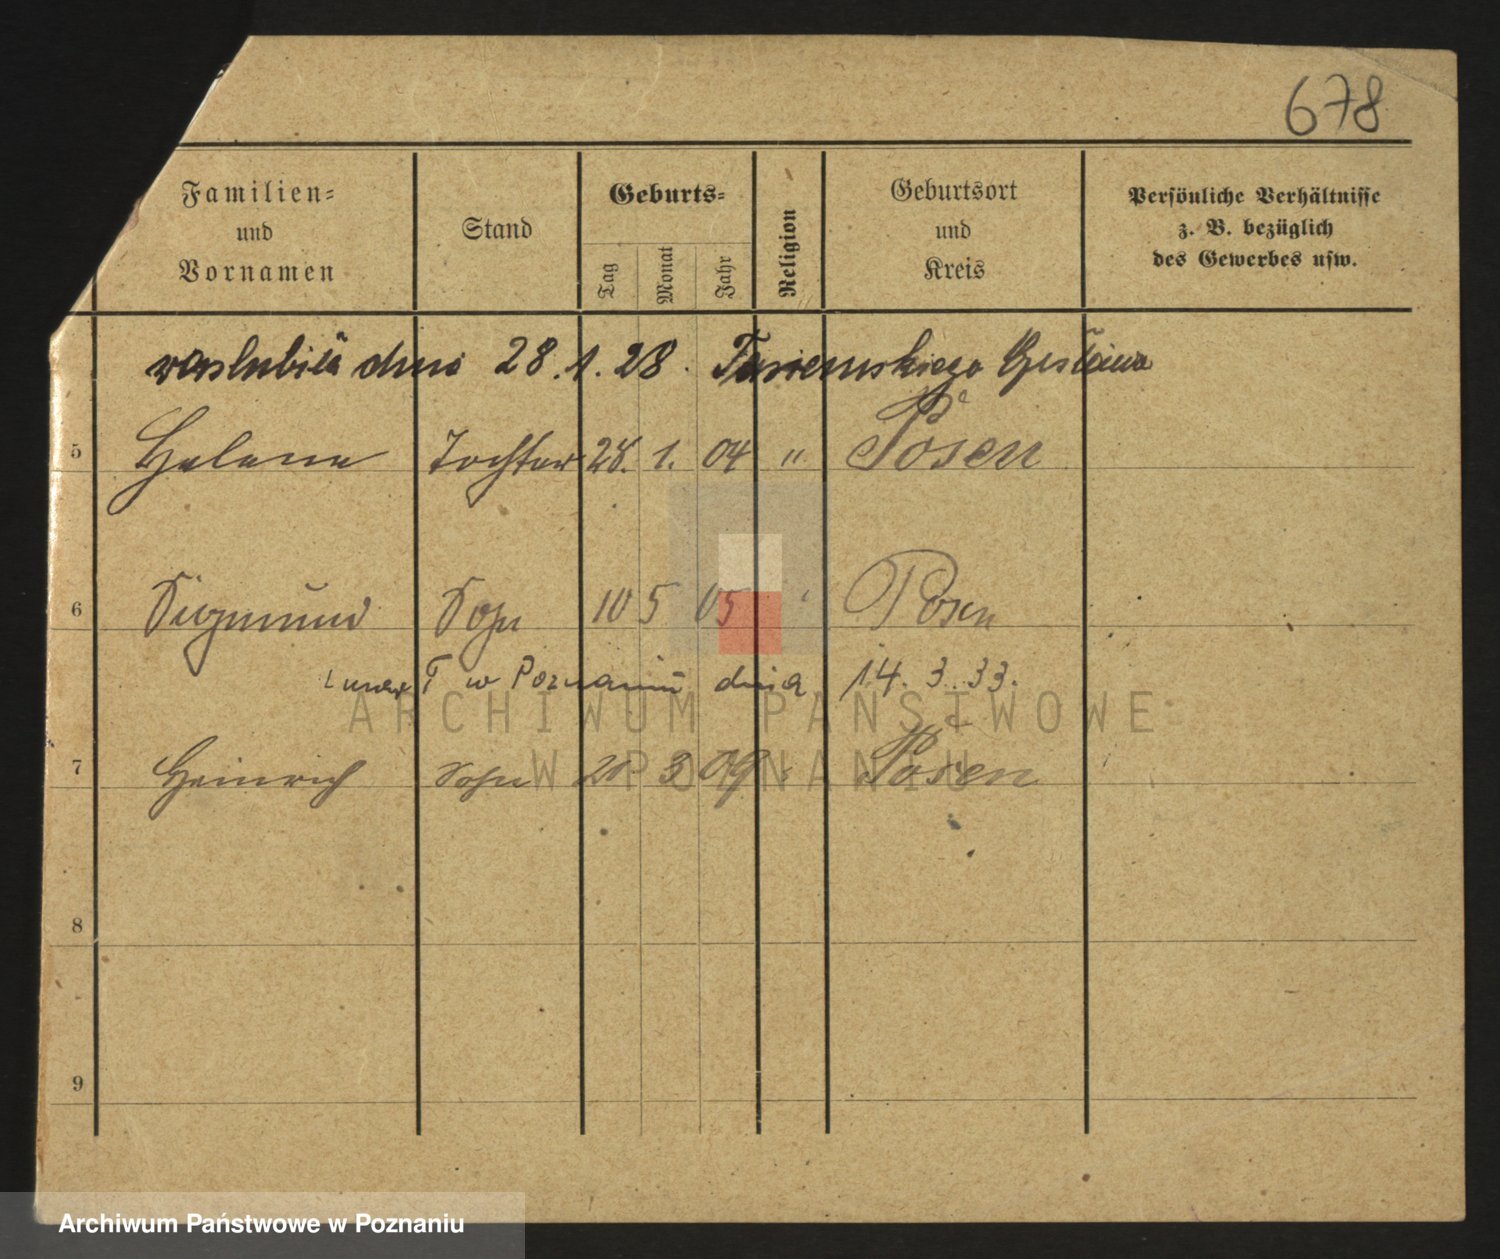 678
Familien-
und
Vornamen
Stand
Geburts-
Tag
Monat
Jahr
Religion
Geburtsort
und
Kreis
Persönliche Verhältnisse
z. B. bezüglich
des Gewerbes usw.
dnia 28.1.28.
5 Helene Tochter 28. 1. 04 " Posen
6 Sigmund Sohn 10 5 05 " Posen
w Poznaniu dnia 14. 3. 33.
7 Heinrich Sohn 20 3 09 Posen
8
9
ARCHIWUM PAŃSTWOWE
W POZNANIU
Archiwum Państwowe w Poznaniu